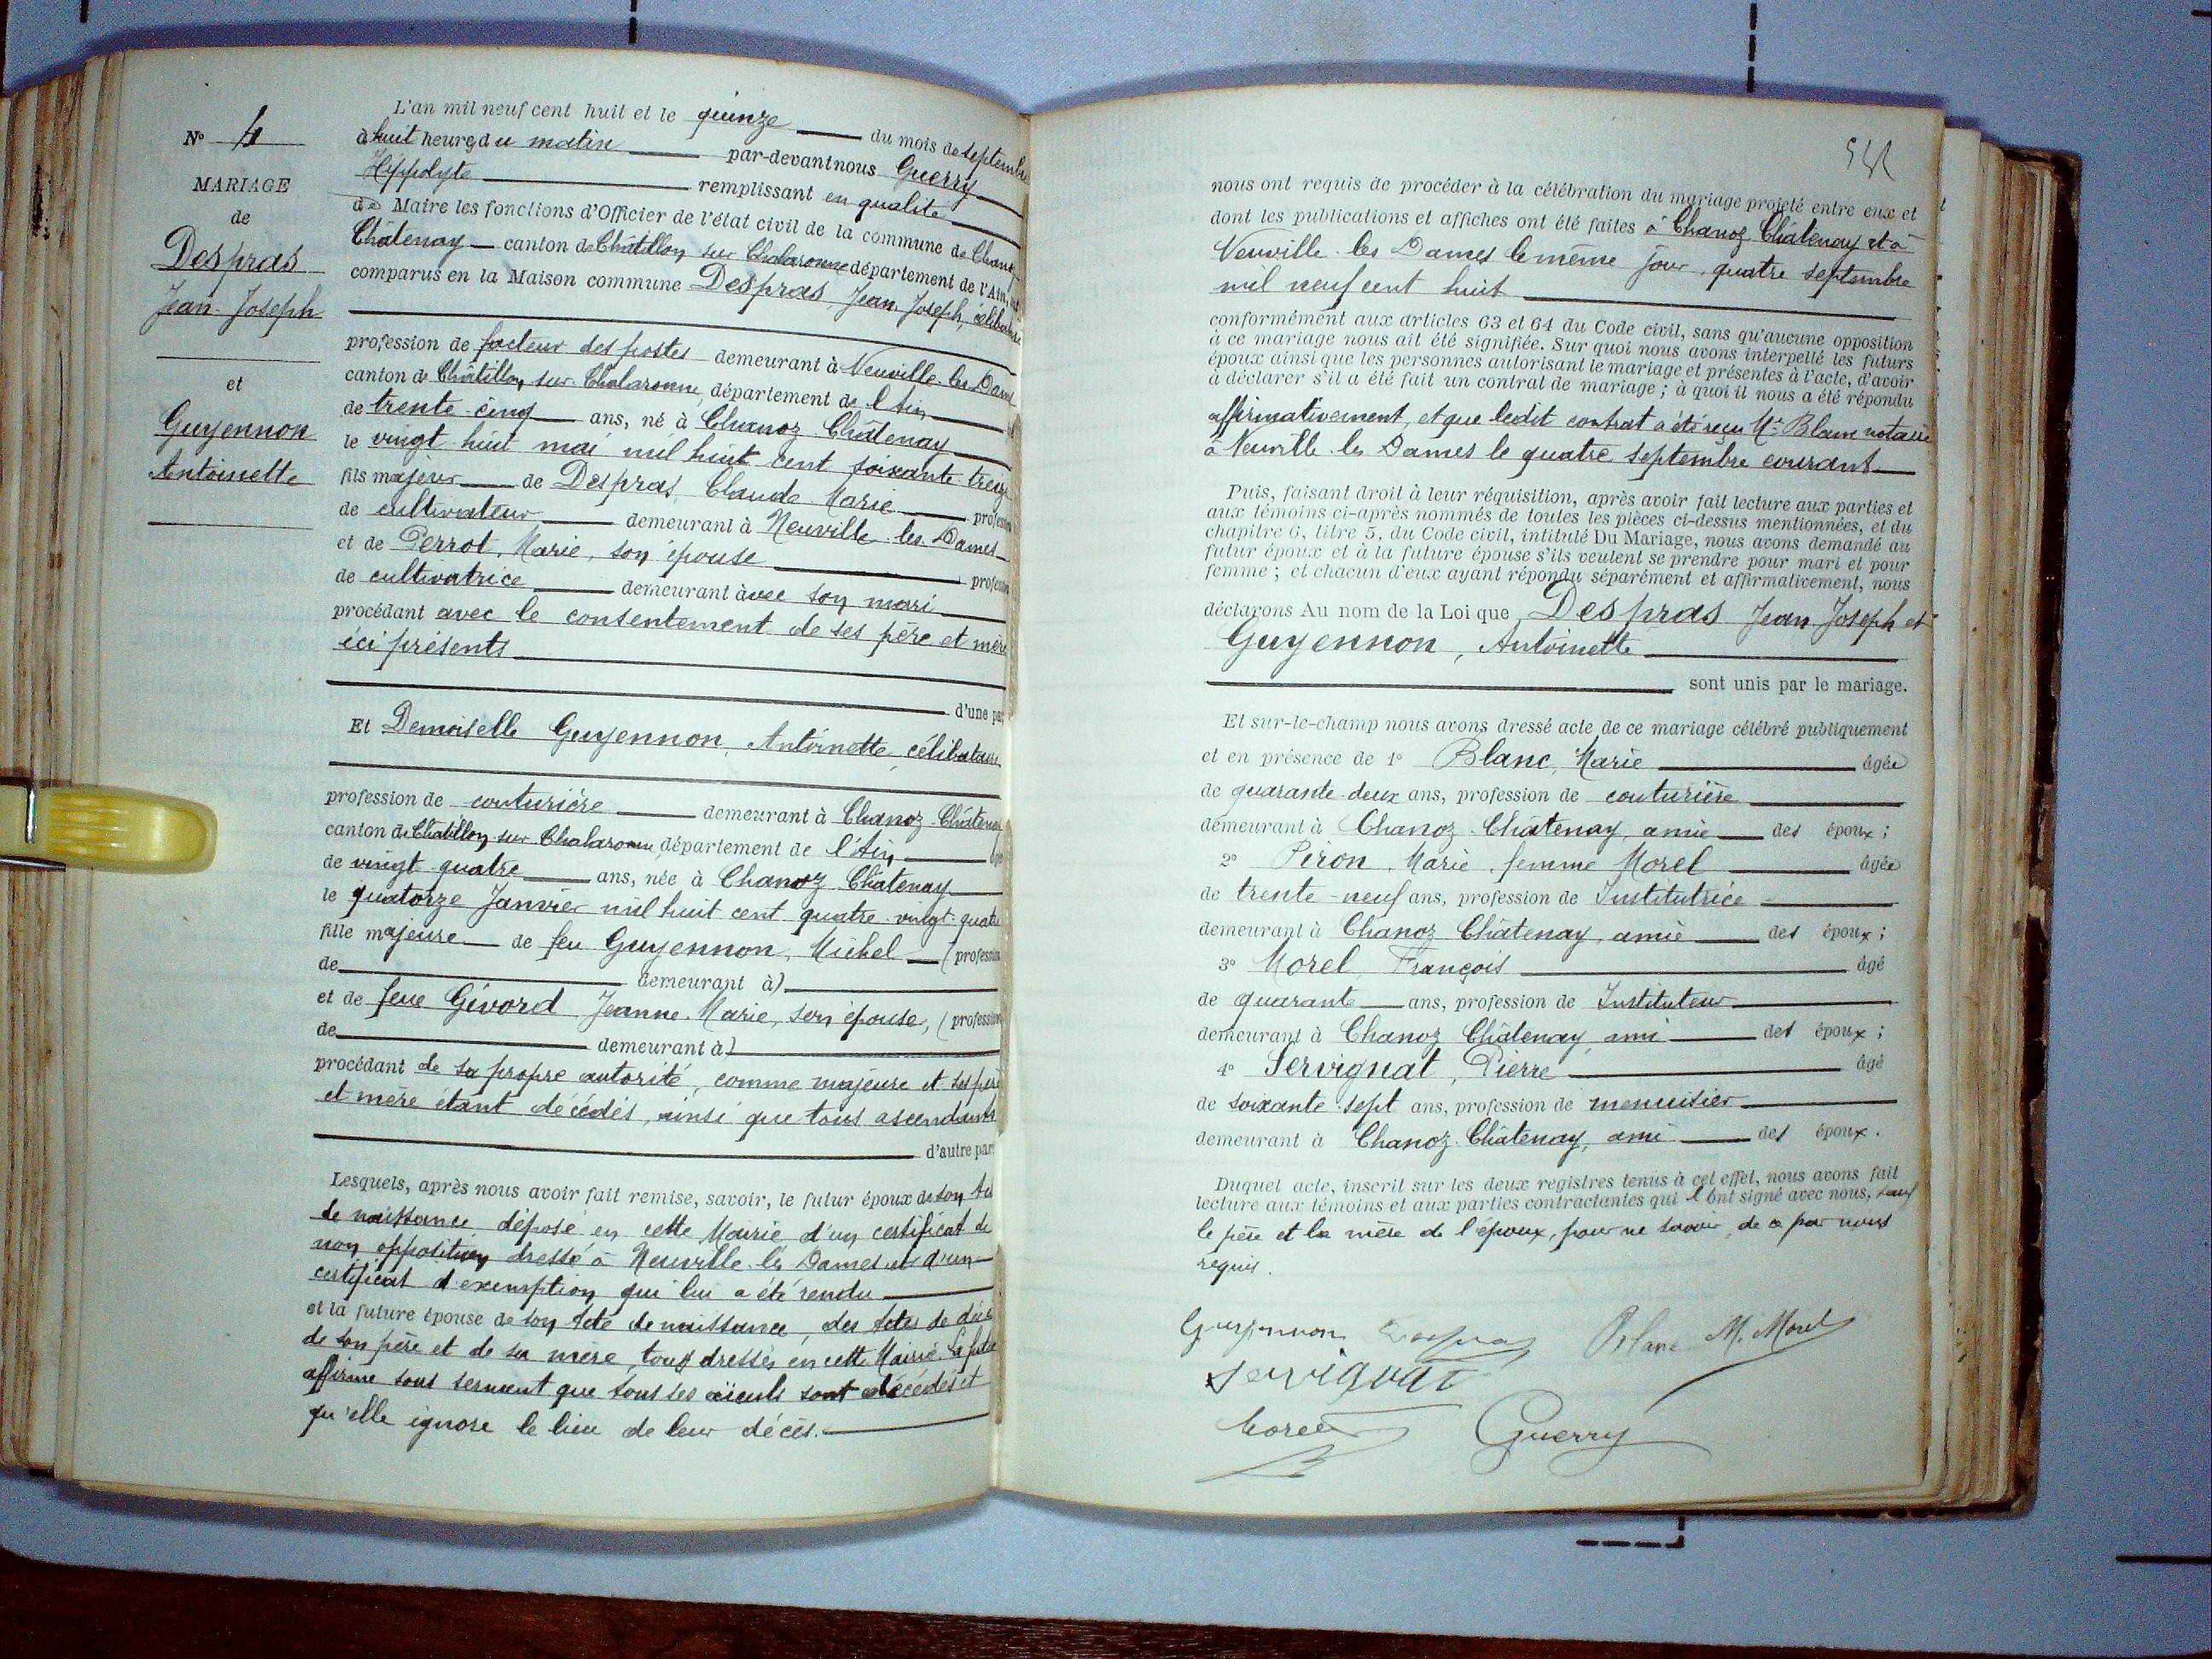 N° 4
MARIAGE
de
Despras
Jean Joseph
et
Guyennon
Antoinette
L'an mil neuf cent huit et le quinze du mois de septembre
à huit heures du matin par-devant nous Guerry
Hippolyte remplissant en qualité
de Maire les fonctions d'Officier de l'état civil de la commune de Chanoz
Châtenay canton de Châtillon sur Chalaronne département de l'Ain, ont
comparus en la Maison commune Despras, Jean Joseph, célibataire
profession de facteur des postes demeurant à Neuville les Dames
canton de Châtillon sur Chalaronne, département de l'Ain
de trente-cinq ans, né à Chanoz Châtenay
le vingt huit mai mil huit cent soixante treize
fils majeur de Despras, Claude Marie profession
de cultivateur demeurant à Neuville les Dames
et de Perrot, Marie, son épouse profession
de cultivatrice demeurant avec son mari
procédant avec le consentement de ses père et mère
ici présents
d'une part
Et Demoiselle Guyennon, Antoinette, célibataire
profession de couturière demeurant à Chanoz-Châtenay
canton de Châtillon sur Chalaronne, département de l'Ain âgée
de vingt-quatre ans, née à Chanoz Châtenay
le quatorze Janvier mil huit cent quatre-vingt-quatre
fille majeure de feu Guyennon, Michel (profession
de demeurant à)
et de feue Gévord Jeanne-Marie, son épouse, (profession
de demeurant à)
procédant de sa propre autorité, comme majeure et ses père
et mère étant décédés, ainsi que tous ascendants
d'autre part
Lesquels, après nous avoir fait remise, savoir, le futur époux de son Acte
de naissance déposé en cette Mairie d'un certificat de
non opposition dressé à Neuville les Dames et d'un
certificat d'exemption qui lui a été rendu
et la future épouse de son Acte de naissance, des Actes de décès
de son père et de sa mère, tous dressés en cette Mairie. La future
affirme sous serment que tous ses aïeuls sont décédés et
qu'elle ignore le lieu de leur décès.
nous ont requis de procéder à la célébration du mariage projeté entre eux et
dont les publications et affiches ont été faites à Chanoz Châtenay et à
Neuville les Dames le même jour, quatre septembre
mil neuf cent huit
conformément aux articles 63 et 64 du Code civil, sans qu'aucune opposition
à ce mariage nous ait été signifiée. Sur quoi nous avons interpellé les futurs
époux ainsi que les personnes autorisant le mariage et présentes à l'acte, d'avoir
à déclarer s'il a été fait un contrat de mariage ; à quoi il nous a été répondu
affirmativement, et que ledit contrat a été reçu Me Blanc notaire
à Neuville les Dames le quatre septembre courant
Puis, faisant droit à leur réquisition, après avoir fait lecture aux parties et
aux témoins ci-après nommés de toutes les pièces ci-dessus mentionnées, et du
chapitre 6, titre 5, du Code civil, intitulé Du Mariage, nous avons demandé au
futur époux et à la future épouse s'ils veulent se prendre pour mari et pour
femme ; et chacun d'eux ayant répondu séparément et affirmativement, nous
déclarons Au nom de la Loi que Despras Jean Joseph et
Guyennon, Antoinette
sont unis par le mariage.
Et sur-le-champ nous avons dressé acte de ce mariage célébré publiquement
et en présence de 1° Blanc, Marie âgée
de quarante-deux ans, profession de couturière
demeurant à Chanoz-Châtenay, amie des époux ;
2° Piron, Marie, femme Morel âgée
de trente-neuf ans, profession de Institutrice
demeurant à Chanoz Châtenay, amie des époux ;
3° Morel, François âgé
de quarante ans, profession de Instituteur
demeurant à Chanoz Châtenay, ami des époux ;
4° Servignat, Pierre âgé
de soixante-sept ans, profession de menuisier
demeurant à Chanoz-Châtenay, ami des époux.
Duquel acte, inscrit sur les deux registres tenus à cet effet, nous avons fait
lecture aux témoins et aux parties contractantes qui l'ont signé avec nous, sauf
le père et la mère de l'époux, pour ne savoir, de ce par nous
requis.
Guyennon Despras Blanc M. Morel
Servignat
Morel Guerry